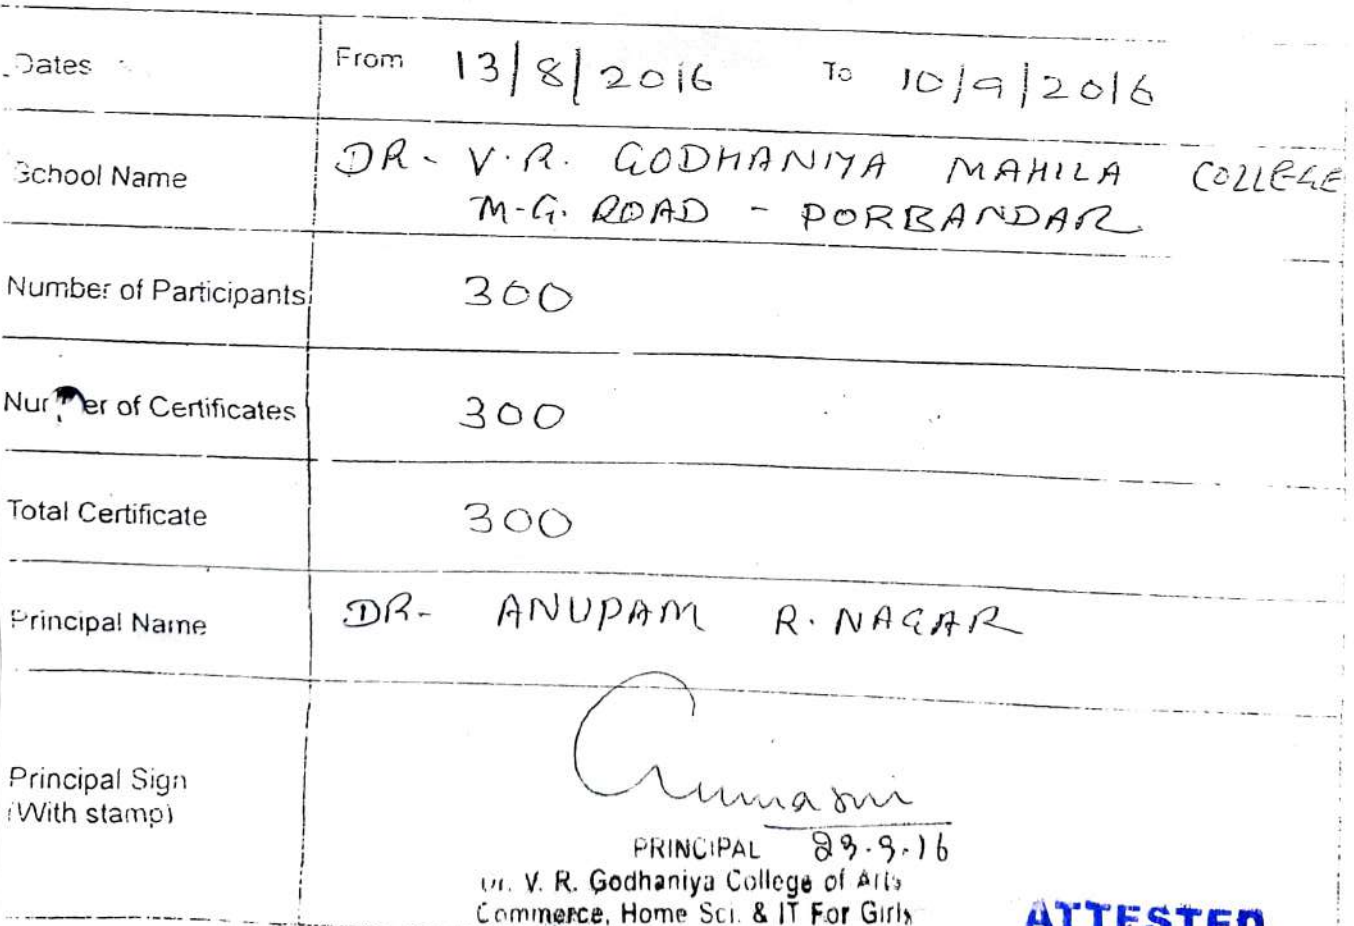 Dates From 13/8/2016 To 10/9/2016
School Name DR- V.R. GODHANIYA MAHILA COLLEGE
M-G. ROAD - PORBANDAR
Number of Participants 300
of Certificates 300
Total Certificate 300
Principal Name DR- ANUPAM R. NAGAR
Principal Sign
(With stamp)
PRINCIPAL 23.9.16
Dr. V. R. Godhaniya College of Arts
Commerce, Home Sci. & IT For Girls
ATTESTED